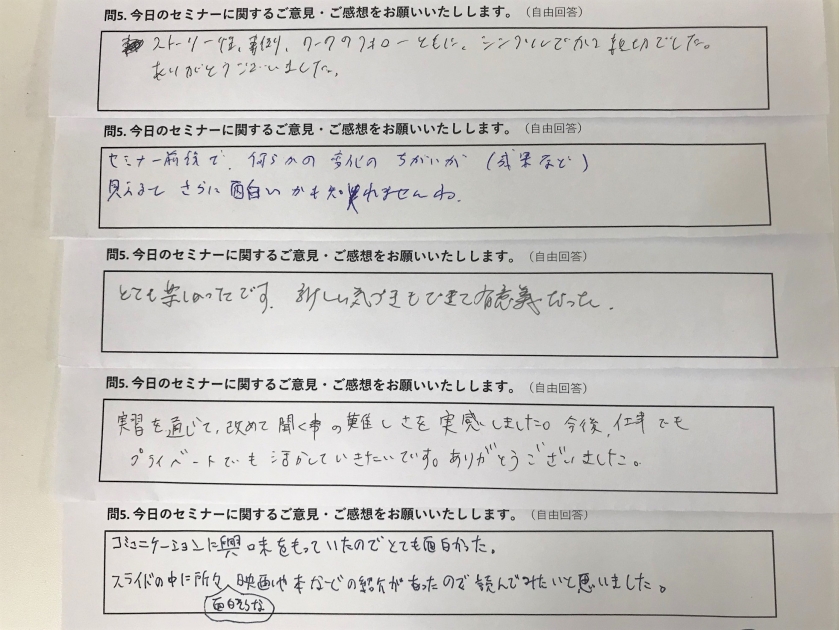 問5. 今日のセミナーに関するご意見・ご感想をお願いいたしします。（自由回答）
ストーリー性、事例、ワークのフォローともに、シンプルでかつ親切でした。
ありがとうございました。
問5. 今日のセミナーに関するご意見・ご感想をお願いいたしします。（自由回答）
セミナー前後で、何らかの変化のちがいが（成果など）
見えると さらに面白いかも知れませんね。
問5. 今日のセミナーに関するご意見・ご感想をお願いいたしします。（自由回答）
とても楽しかったです。新しい気づきもできて有意義だった。
問5. 今日のセミナーに関するご意見・ご感想をお願いいたしします。（自由回答）
実習を通じて、改めて聞く事の難しさを実感しました。今後、仕事でも
プライベートでも活かしていきたいです。ありがとうございました。
問5. 今日のセミナーに関するご意見・ご感想をお願いいたしします。（自由回答）
コミュニケーションに興味をもっていたのでとても面白かった。
スライドの中に所々、映画や本などの紹介があったので読んでみたいと思いました。
面白そうな